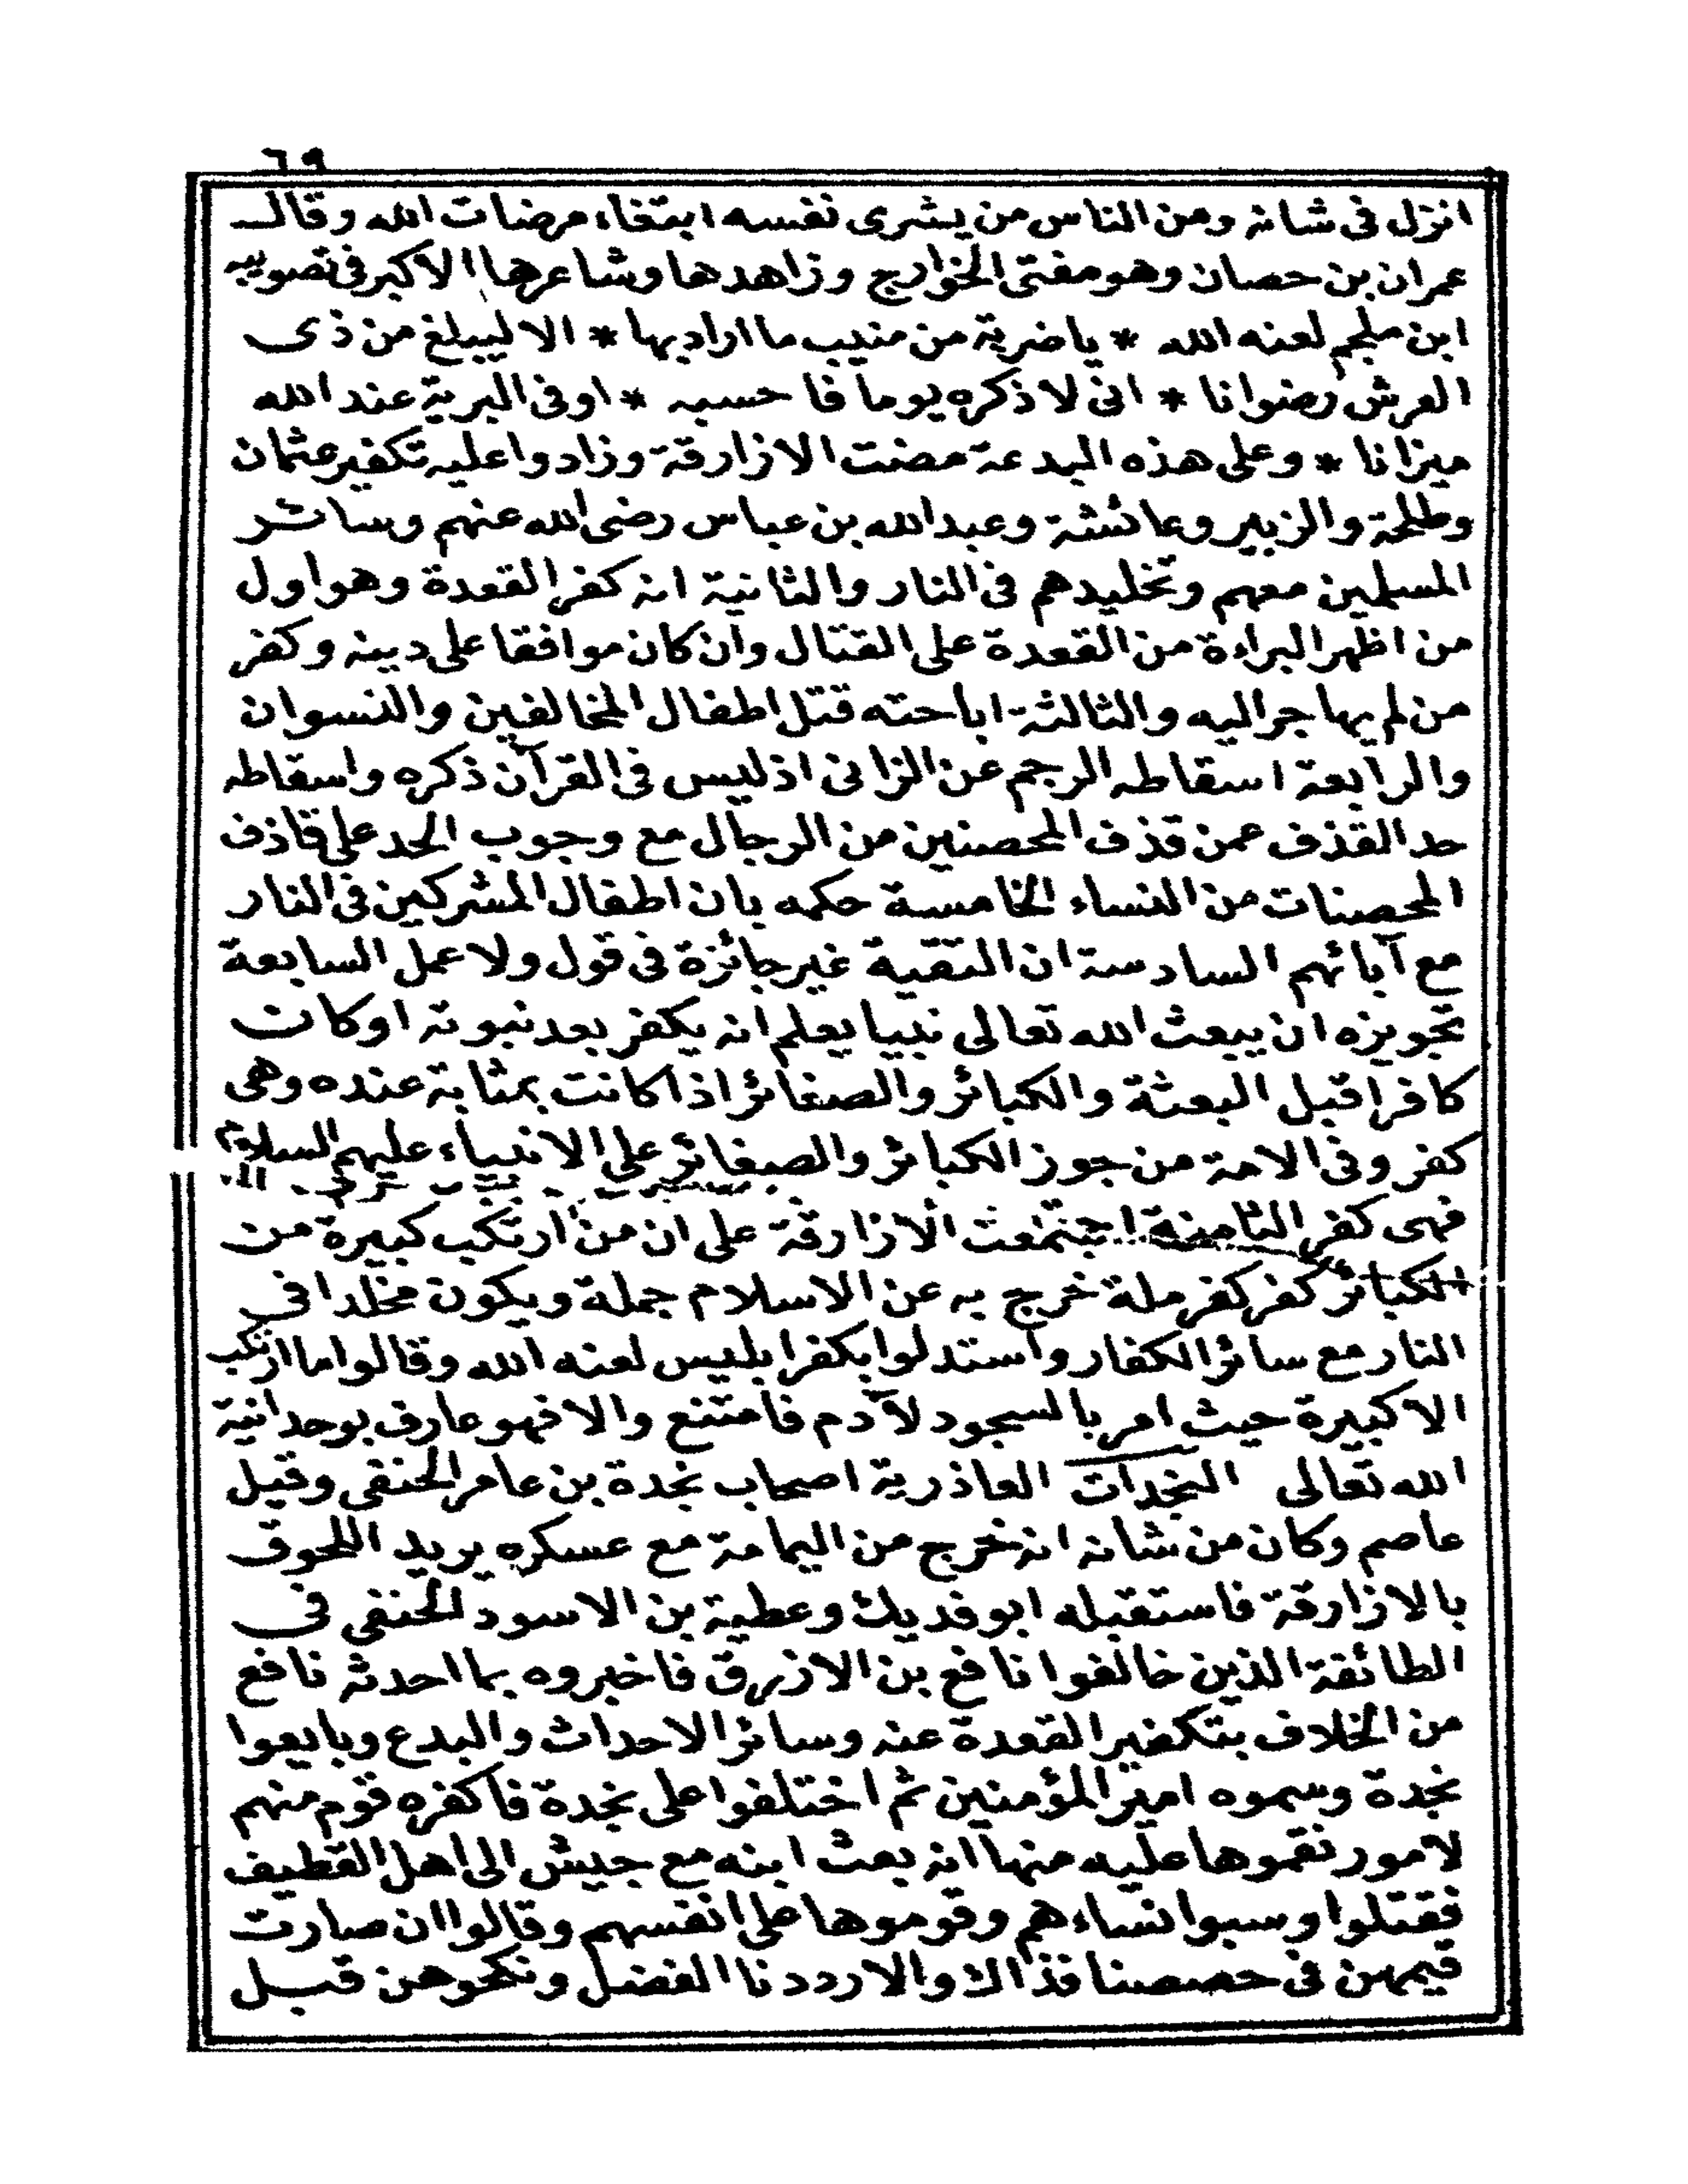 ٦٩
انزل فى شانه ومن الناس من يشرى نفسه ابتغاء مرضات الله وقال
عمران بن حصان وهو مفتى الخوارج وزاهدها وشاعرها الاكبر فى تصويبه
ابن ملجم لعنه الله * ياضربة من منيب ما اراد بها * الا ليبلغ من ذى
العرش رضوانا * انى لاذكره يوما فا حسبه * اوفى البرية عند الله
ميزانا * وعلى هذه البدعة مضت الازارقة وزادوا عليه تكفير عثمان
وطلحة والزبير وعائشة وعبدالله بن عباس رضى الله عنهم وسائر
المسلمين معهم وتخليدهم فى النار والثانية انه كفر القعدة وهو اول
من اظهر البراءة من القعدة على القتال وان كان موافقا على دينه وكفر
من لم يهاجر اليه والثالثة اباحته قتل اطفال المخالفين والنسوان
والرابعة اسقاطه الرجم عن الزانى اذليس فى القرآن ذكره واسقاطه
حد القذف عمن قذف المحصنين من الرجال مع وجوب الحد على قاذف
المحصنات من النساء الخامسة حكمه بان اطفال المشركين فى النار
مع آبائهم السادسة ان التقية غير جائزة فى قول ولا عمل السابعة
تجويزه ان يبعث الله تعالى نبيا يعلم انه يكفر بعد نبوته اوكان
كافرا قبل البعثة والكبائر والصغائر اذا كانت بمثابة عنده وهى
كفر وفى الامة من جوز الكبائر والصغائر على الانبياء عليهم السلام
فهى كفر الثامنة اجتمعت الازارقة على ان من ارتكب كبيرة من
الكبائر كفر كفر ملة خرج به عن الاسلام جملة ويكون مخلدا فى
النار مع سائر الكفار واستدلوا بكفر ابليس لعنه الله وقالوا ما ارتكب
الا كبيرة حيث امر بالسجود لآدم فامتنع والا فهو عارف بوحدانية
الله تعالى النجدات العاذرية اصحاب نجدة بن عامر الحنفى وقيل
عاصم وكان من شانه انه خرج من اليمامة مع عسكره يريد اللحوق
بالازارقة فاستقبله ابو فديك وعطية بن الاسود الحنفى فى
الطائفة الذين خالفوا نافع بن الازرق فاخبروه بما احدثه نافع
من الخلاف بتكفير القعدة عنه وسائر الاحداث والبدع وبايعوا
نجدة وسموه امير المؤمنين ثم اختلفوا على نجدة فاكفره قوم منهم
لامور نقموها عليه منها انه بعث ابنه مع جيش الى اهل القطيف
فقتلوا وسبوا نساءهم وقوموها على انفسهم وقالوا ان صارت
قيمهن فى حصصنا فذاك والا رددنا الفضل ونكحوهن قبل